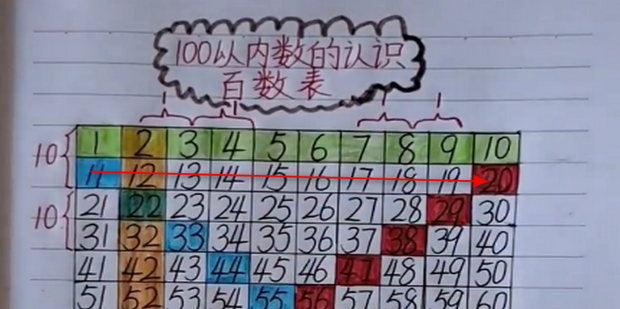 100以内数的认识
百数表
1 1 1 1
10 1 2 3 4 5 6 7 8 9 10
11 12 13 14 15 16 17 18 19 20
10 21 22 23 24 25 26 27 28 29 30
31 32 33 34 35 36 37 38 39 40
41 42 43 44 45 46 47 48 49 50
51 52 53 54 55 56 57 58 59 60